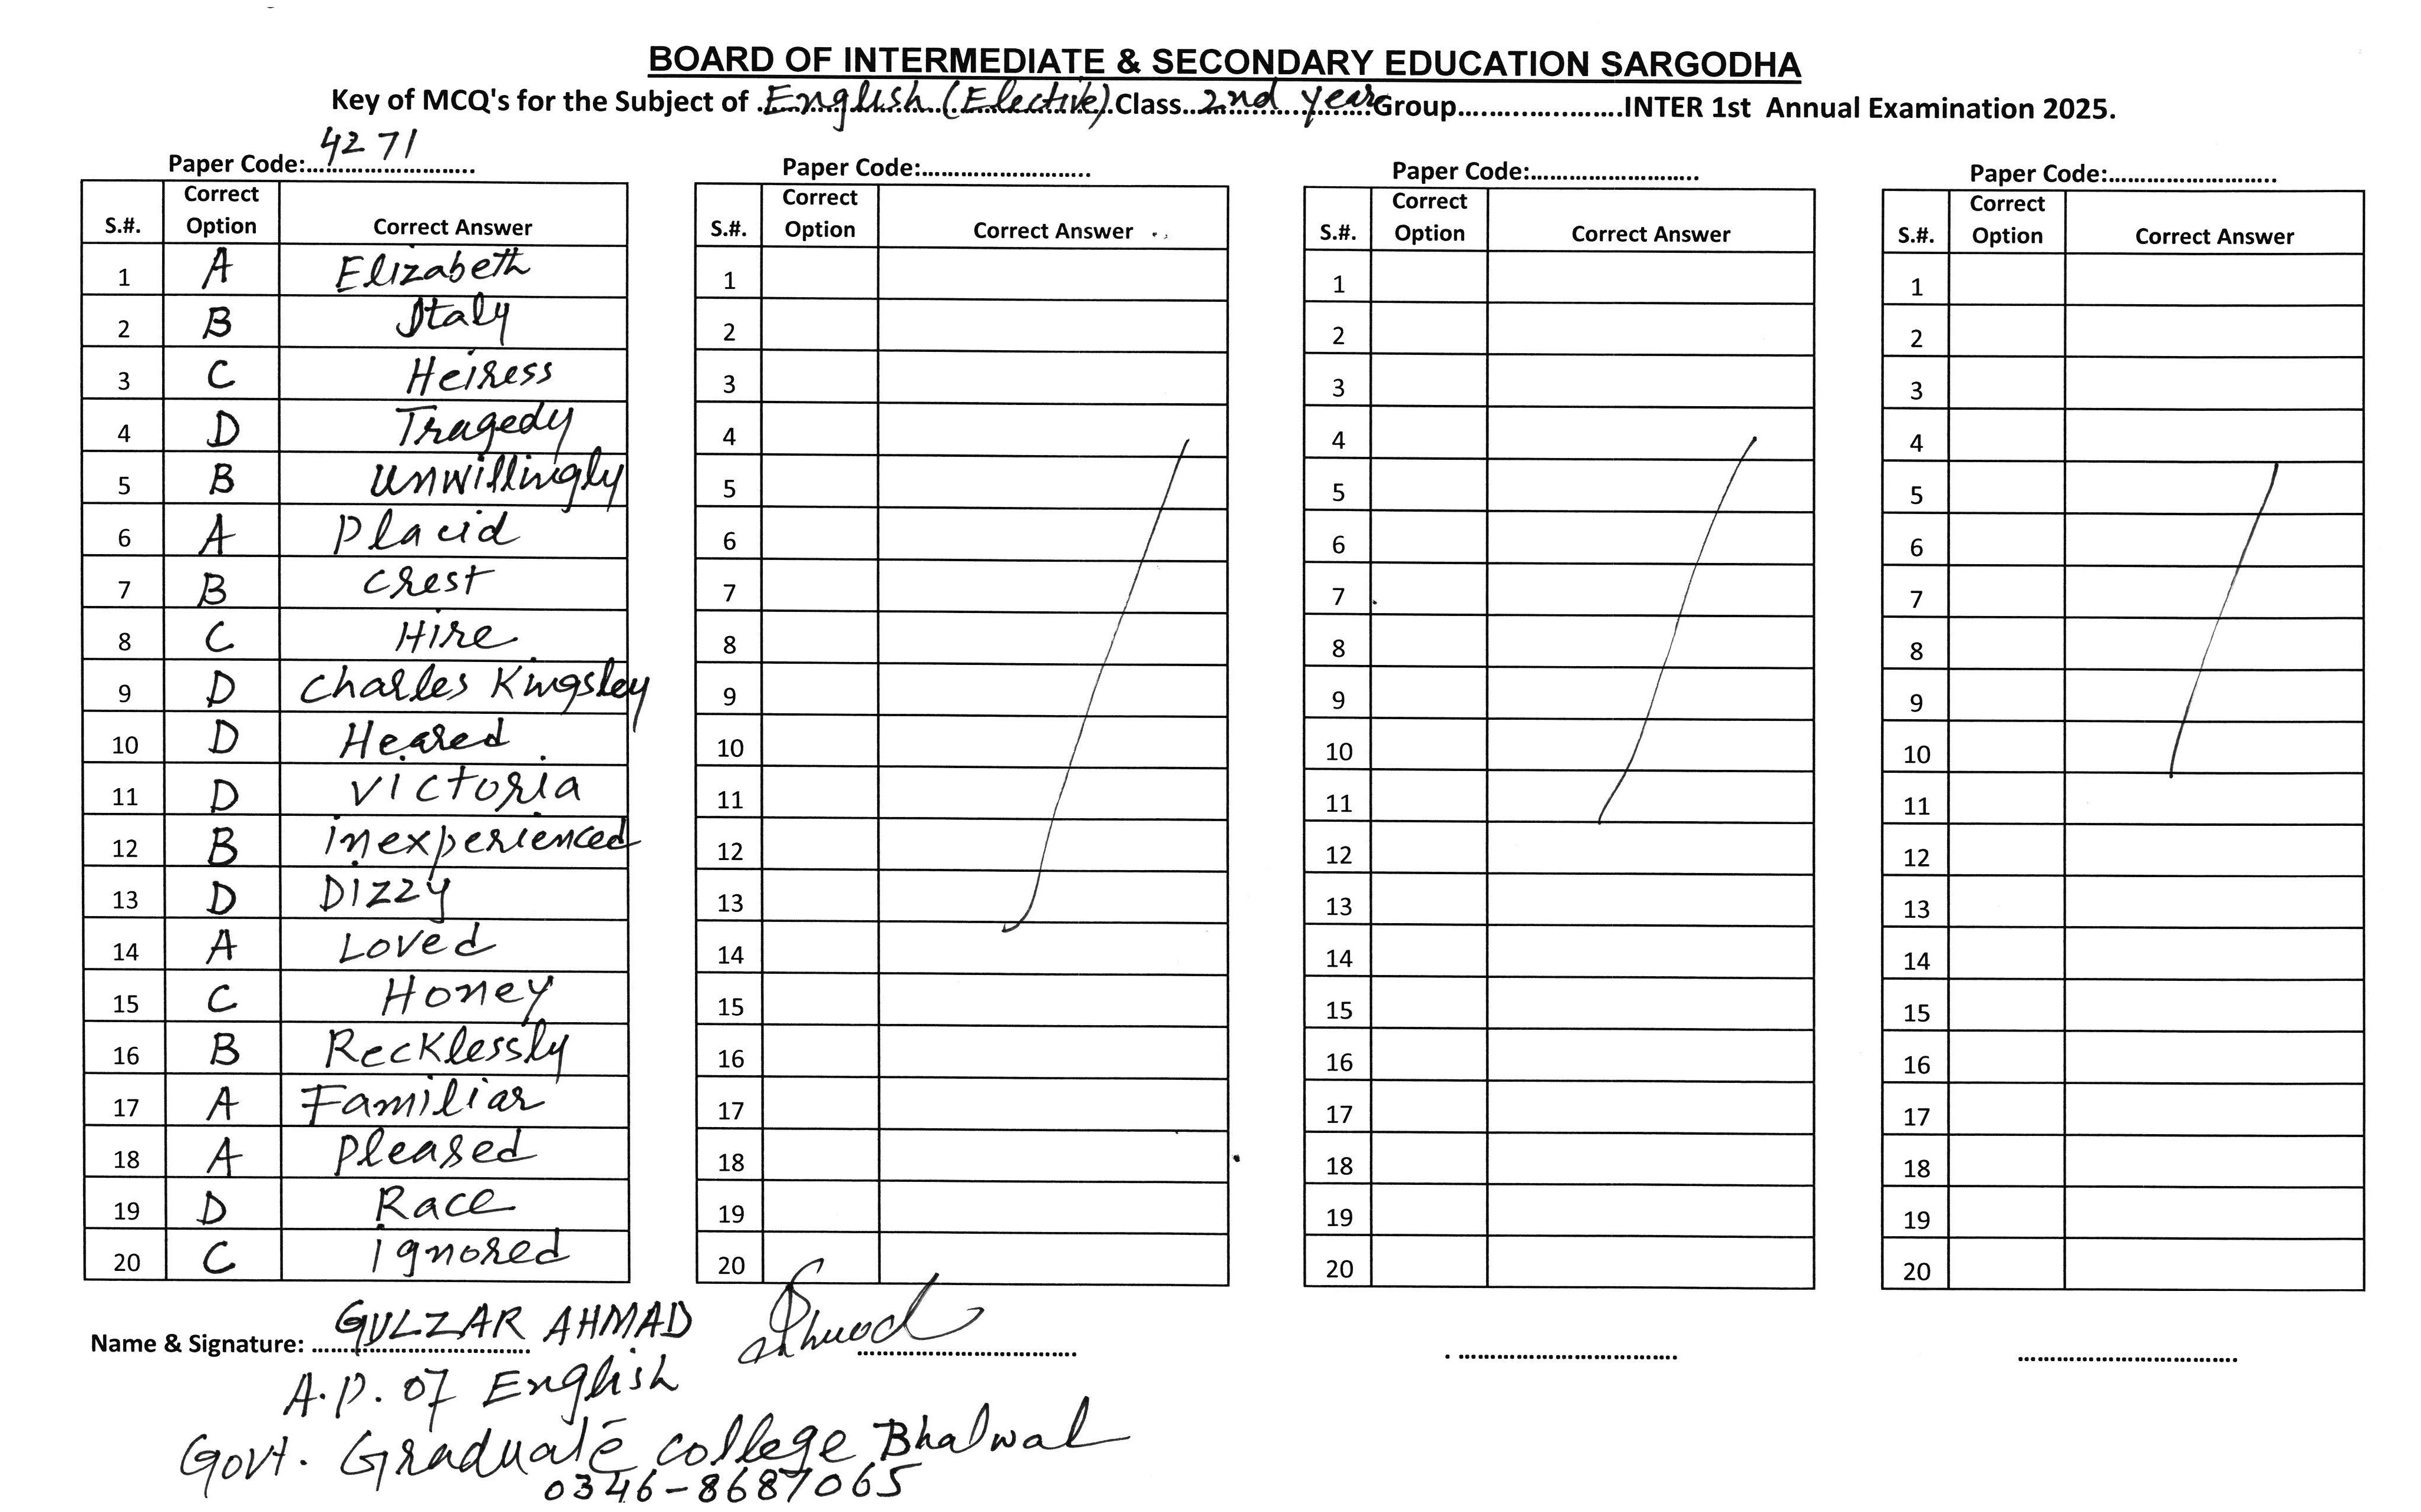 BOARD OF INTERMEDIATE & SECONDARY EDUCATION SARGODHA
Key of MCQ's for the Subject of English (Elective) Class 2nd year Group....................INTER 1st Annual Examination 2025.
Paper Code: 4271
S.#. Correct Option Correct Answer
1 A Elizabeth
2 B Italy
3 C Heiress
4 D Tragedy
5 B unwillingly
6 A Placid
7 B Crest
8 C Hire
9 D Charles Kingsley
10 D Heared
11 D Victoria
12 B inexperienced
13 D Dizzy
14 A Loved
15 C Honey
16 B Recklessly
17 A Familiar
18 A Pleased
19 D Race
20 C ignored
Paper Code:..........................
S.#. Correct Option Correct Answer
1
2
3
4
5
6
7
8
9
10
11
12
13
14
15
16
17
18
19
20
Paper Code:..........................
S.#. Correct Option Correct Answer
1
2
3
4
5
6
7
8
9
10
11
12
13
14
15
16
17
18
19
20
Paper Code:..........................
S.#. Correct Option Correct Answer
1
2
3
4
5
6
7
8
9
10
11
12
13
14
15
16
17
18
19
20
Name & Signature: GULZAR AHMAD
A.P. of English
Govt. Graduate college Bhalwal
0346-8687065